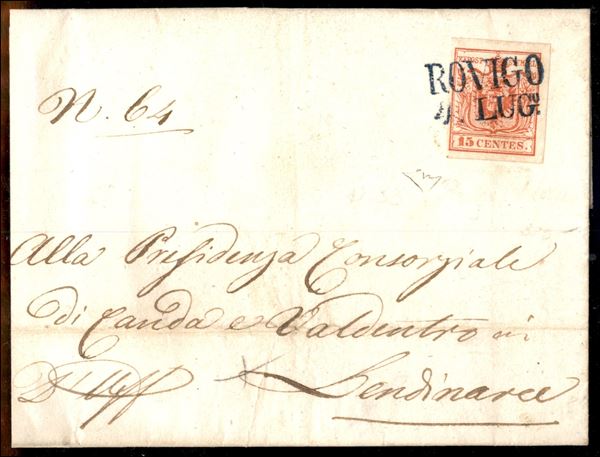 N. 64
ROVIGO
4. LUG.
15 CENTES.
Alla Presidenza Consorziale
di Canda e Valdentro in
Lendinara